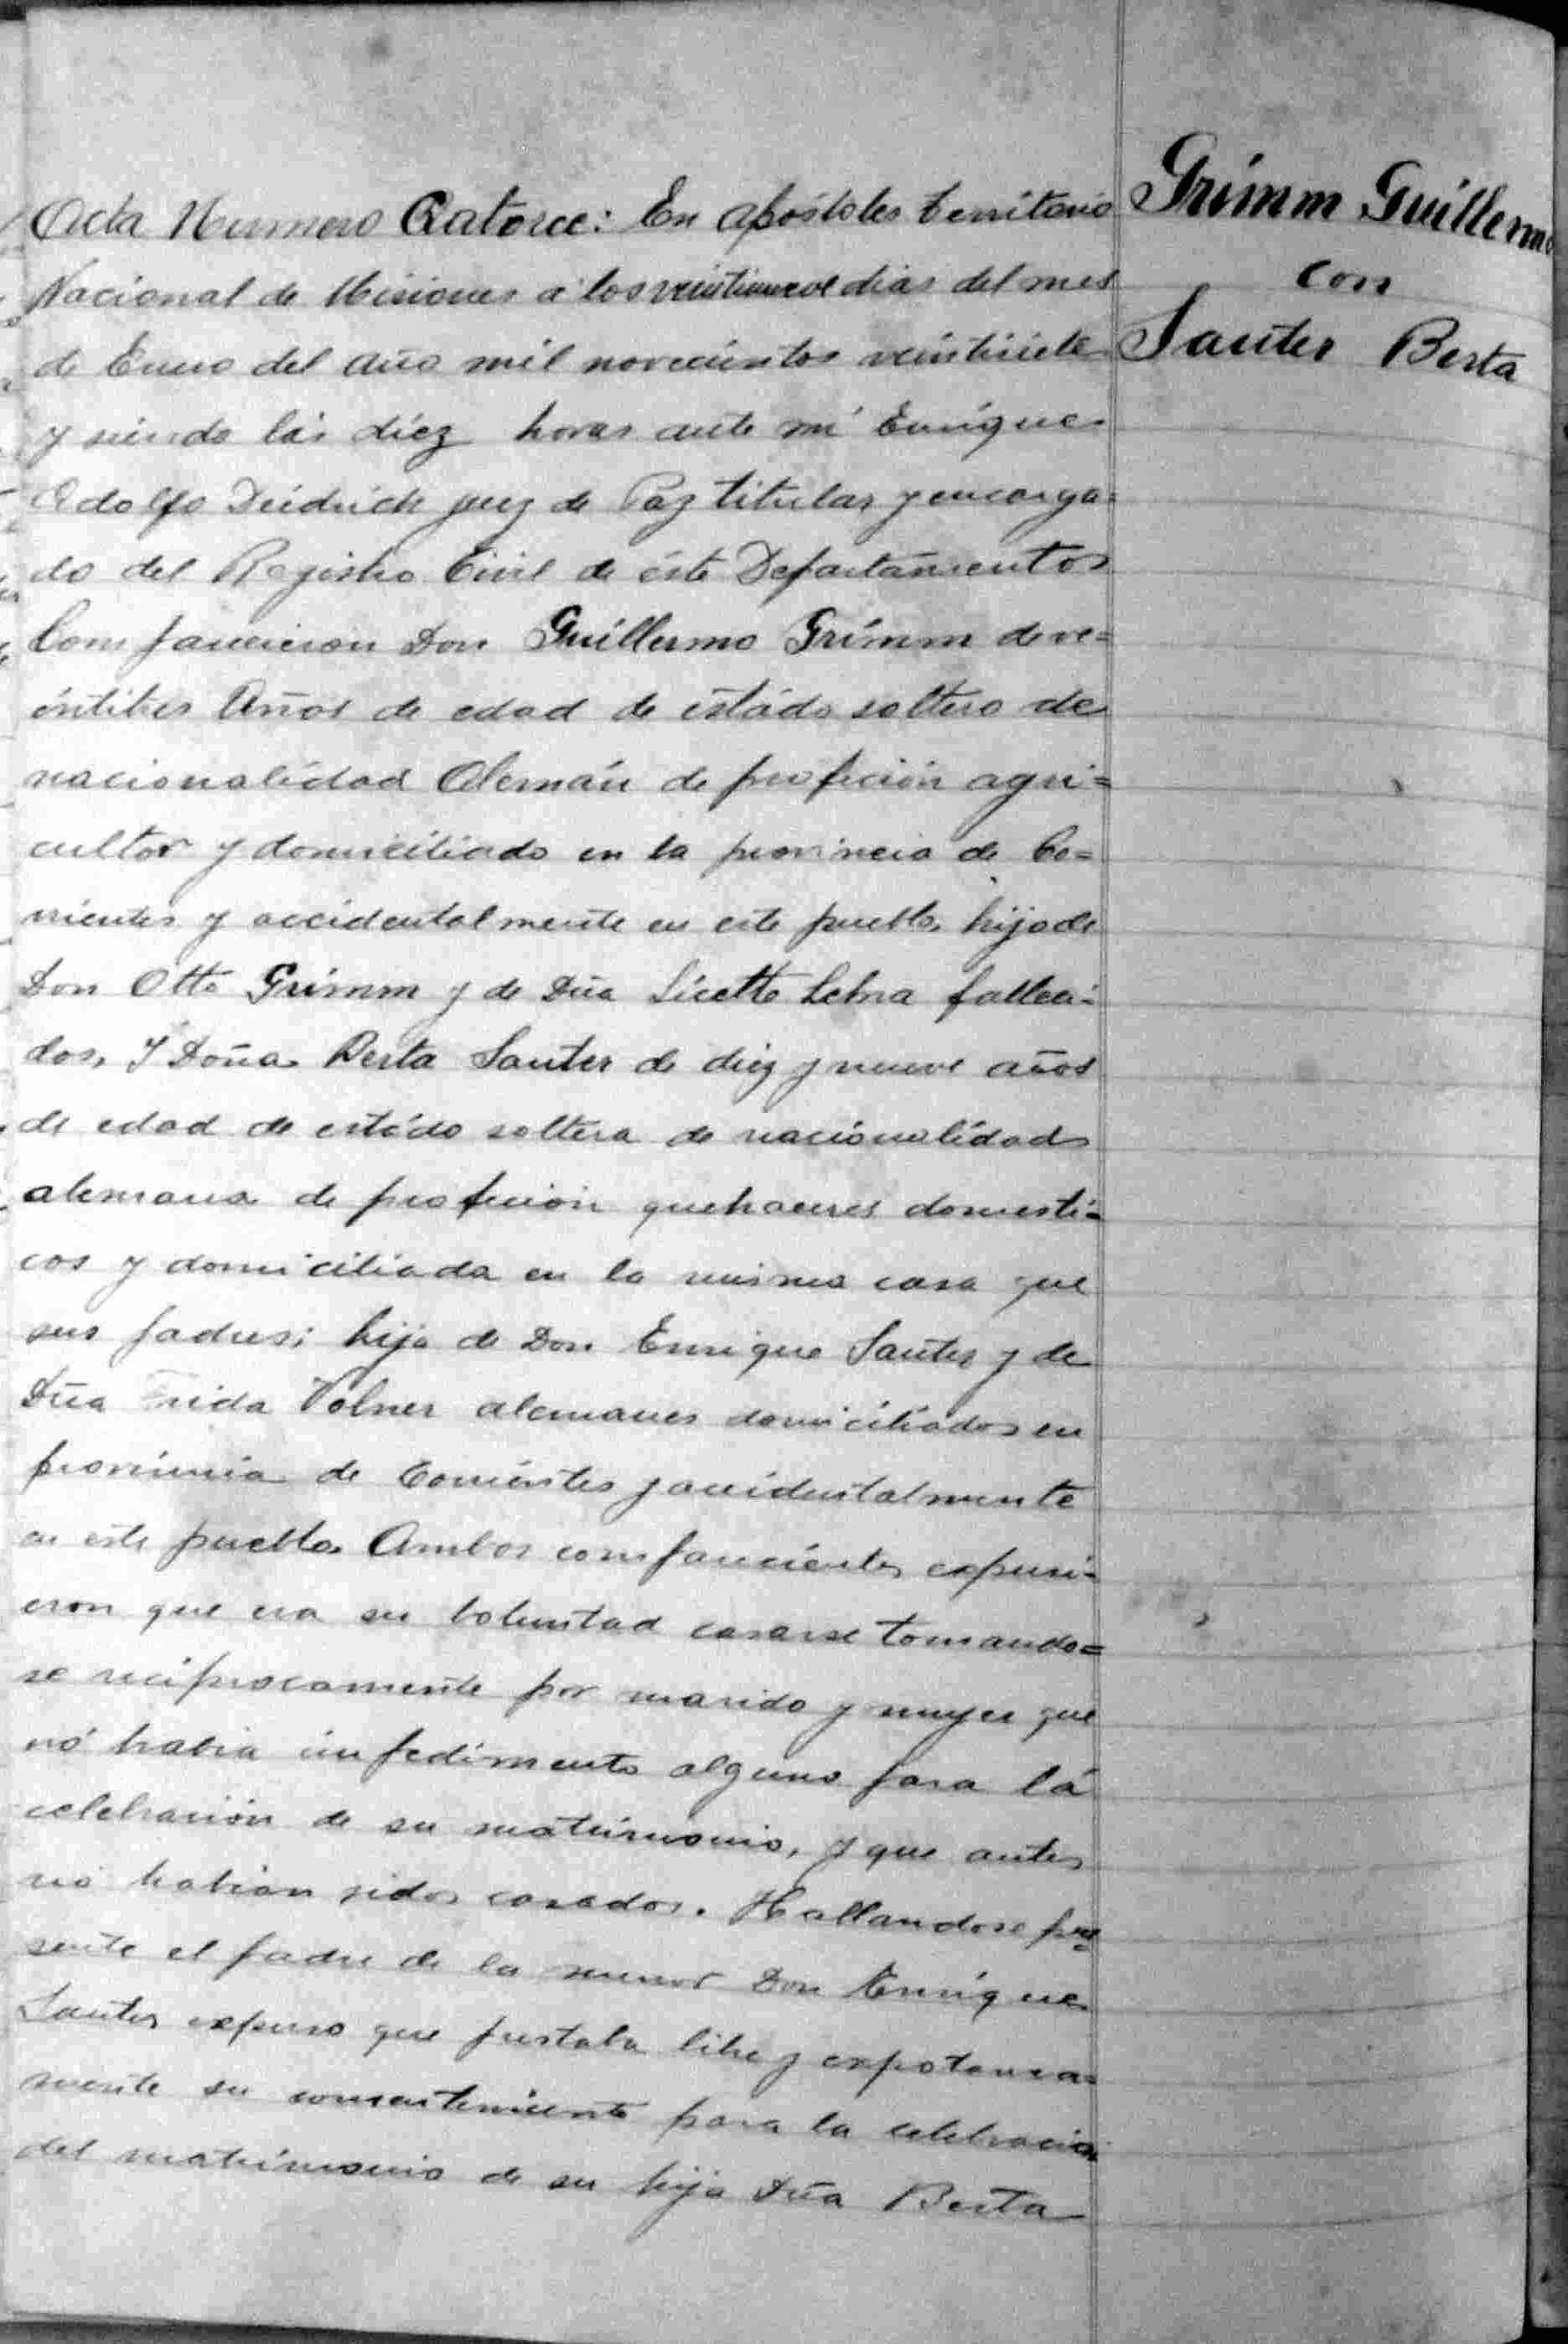 Acta Numero Catorce: En apóstoles territorio
Nacional de Misiones a los veintinueve dias del mes
de Enero del año mil novecientos veintisiete
y siendo lás diéz horas ante mi Enrique
Adolfo Deidrich juez de Paz titular y encarga=
do del Registro Civil de éste Departamento
Comparecieron Don Guillermo Grimm de ve=
intitres Años de edad de estádo soltero de
nacionalidad Alemán de profeción agri=
cultor y domiciliado en la provincia de Co=
rrientes y accidentalmente en este pueblo, hijo de
Don Otto Grimm y de Dña Licette falleci=
dos, Y Doña Berta Sauter de diez y nueve años
de edad de estádo soltera de nacionalidad
alemana de profecion quehaceres domesti=
cos y domiciliada en la misma casa que
sus padres; hija de Don Enrique Sauter y de
Dña Frida Volner alemanes domiciliados en
provincia de Corrientes y accidentalmente
en este pueblo. Ambos comparecientes expusi=
eron que era su boluntad casarse tomando=
se reciprocamente por marido y mujer que
nó habia impedimento alguno para lá
celebración de su matrimonio, y que antes
nó habian sidos casados. Hallandose pre=
sente el padre de la menor Don Enrique
Sauter expuso que prestaba libre y expotanea=
mente su consentimiento para la celebracion
del matrimonio de su hija Dña Berta
Grimm Guillermo
con
Sauter Berta